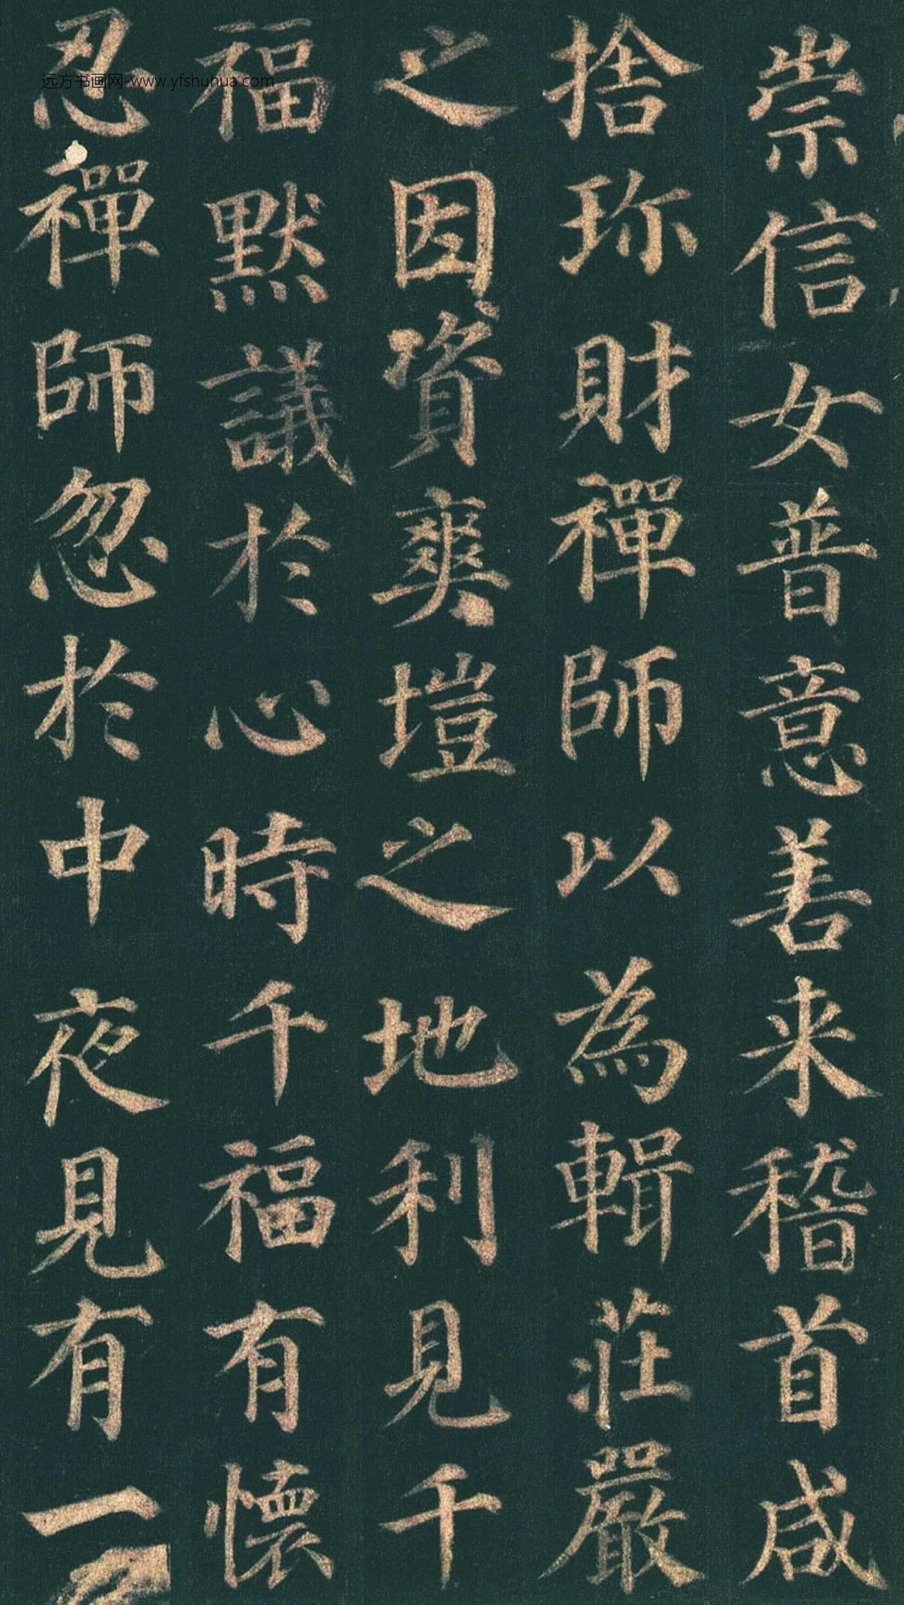 崇信女普意善来稽首咸
捨珎財禪師以為輯莊嚴
之因資爽塏之地利見千
福默議於心時千福有懷
忍禪師忽於中夜見有一
远方书画网-www.yfshuhua.com